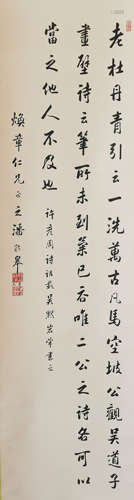 老杜丹青引云一洗萬古凡馬空坡公觀吳道子
畫壁詩云筆所未到氣已吞唯二公之詩各可以
當之他人不及也
許彥周詩話
煥章仁兄正之 潘齡皋